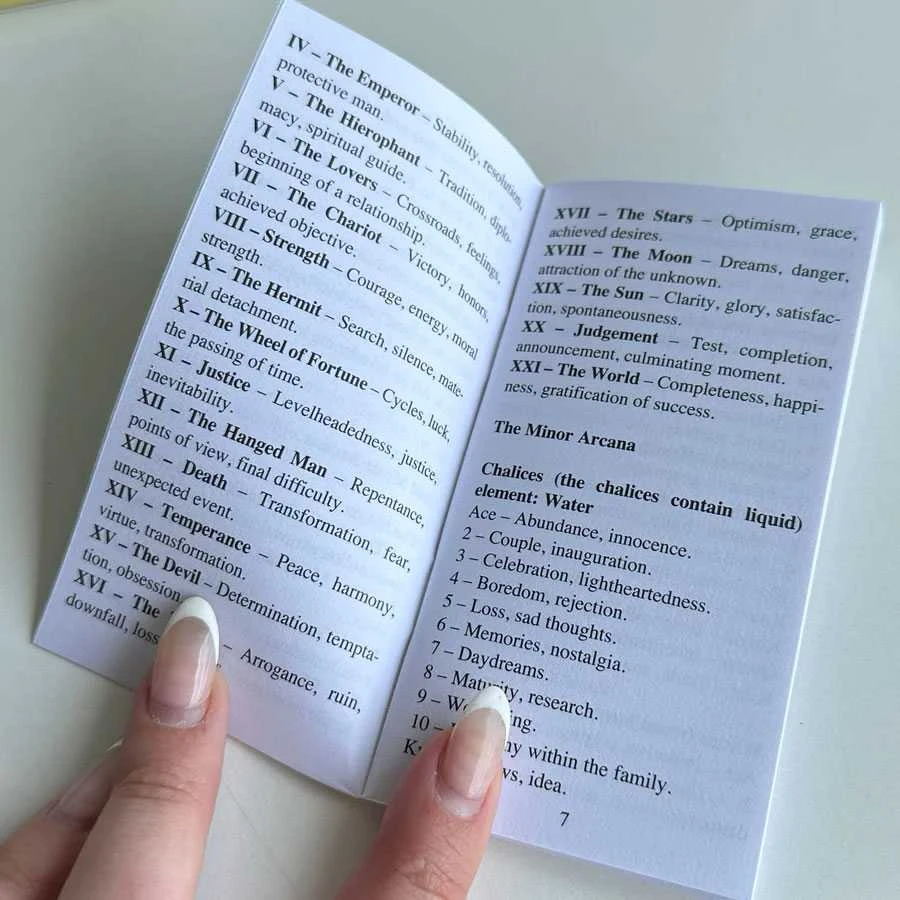 IV – The Emperor – Stability, resolution,
protective man.
V – The Hierophant – Tradition, diplo-
macy, spiritual guide.
VI – The Lovers – Crossroads, feelings,
beginning of a relationship.
VII – The Chariot – Victory, honors,
achieved objective.
VIII – Strength – Courage, energy, moral
strength.
IX – The Hermit – Search, silence, mate-
rial detachment.
X – The Wheel of Fortune – Cycles, luck,
the passing of time.
XI – Justice – Levelheadedness, justice,
inevitability.
XII – The Hanged Man – Repentance,
points of view, final difficulty.
XIII – Death – Transformation, fear,
unexpected event.
XIV – Temperance – Peace, harmony,
virtue, transformation.
XV – The Devil – Determination, tempta-
tion, obsession
XVI – The – Arrogance, ruin,
downfall, loss
XVII – The Stars – Optimism, grace,
achieved desires.
XVIII – The Moon – Dreams, danger,
attraction of the unknown.
XIX – The Sun – Clarity, glory, satisfac-
tion, spontaneousness.
XX – Judgement – Test, completion,
announcement, culminating moment.
XXI – The World – Completeness, happi-
ness, gratification of success.
The Minor Arcana
Chalices (the chalices contain liquid)
element: Water
Ace – Abundance, innocence.
2 – Couple, inauguration.
3 – Celebration, lightheartedness.
4 – Boredom, rejection.
5 – Loss, sad thoughts.
6 – Memories, nostalgia.
7 – Daydreams.
8 – Maturity, research.
9 –
10 – within the family.
idea.
7